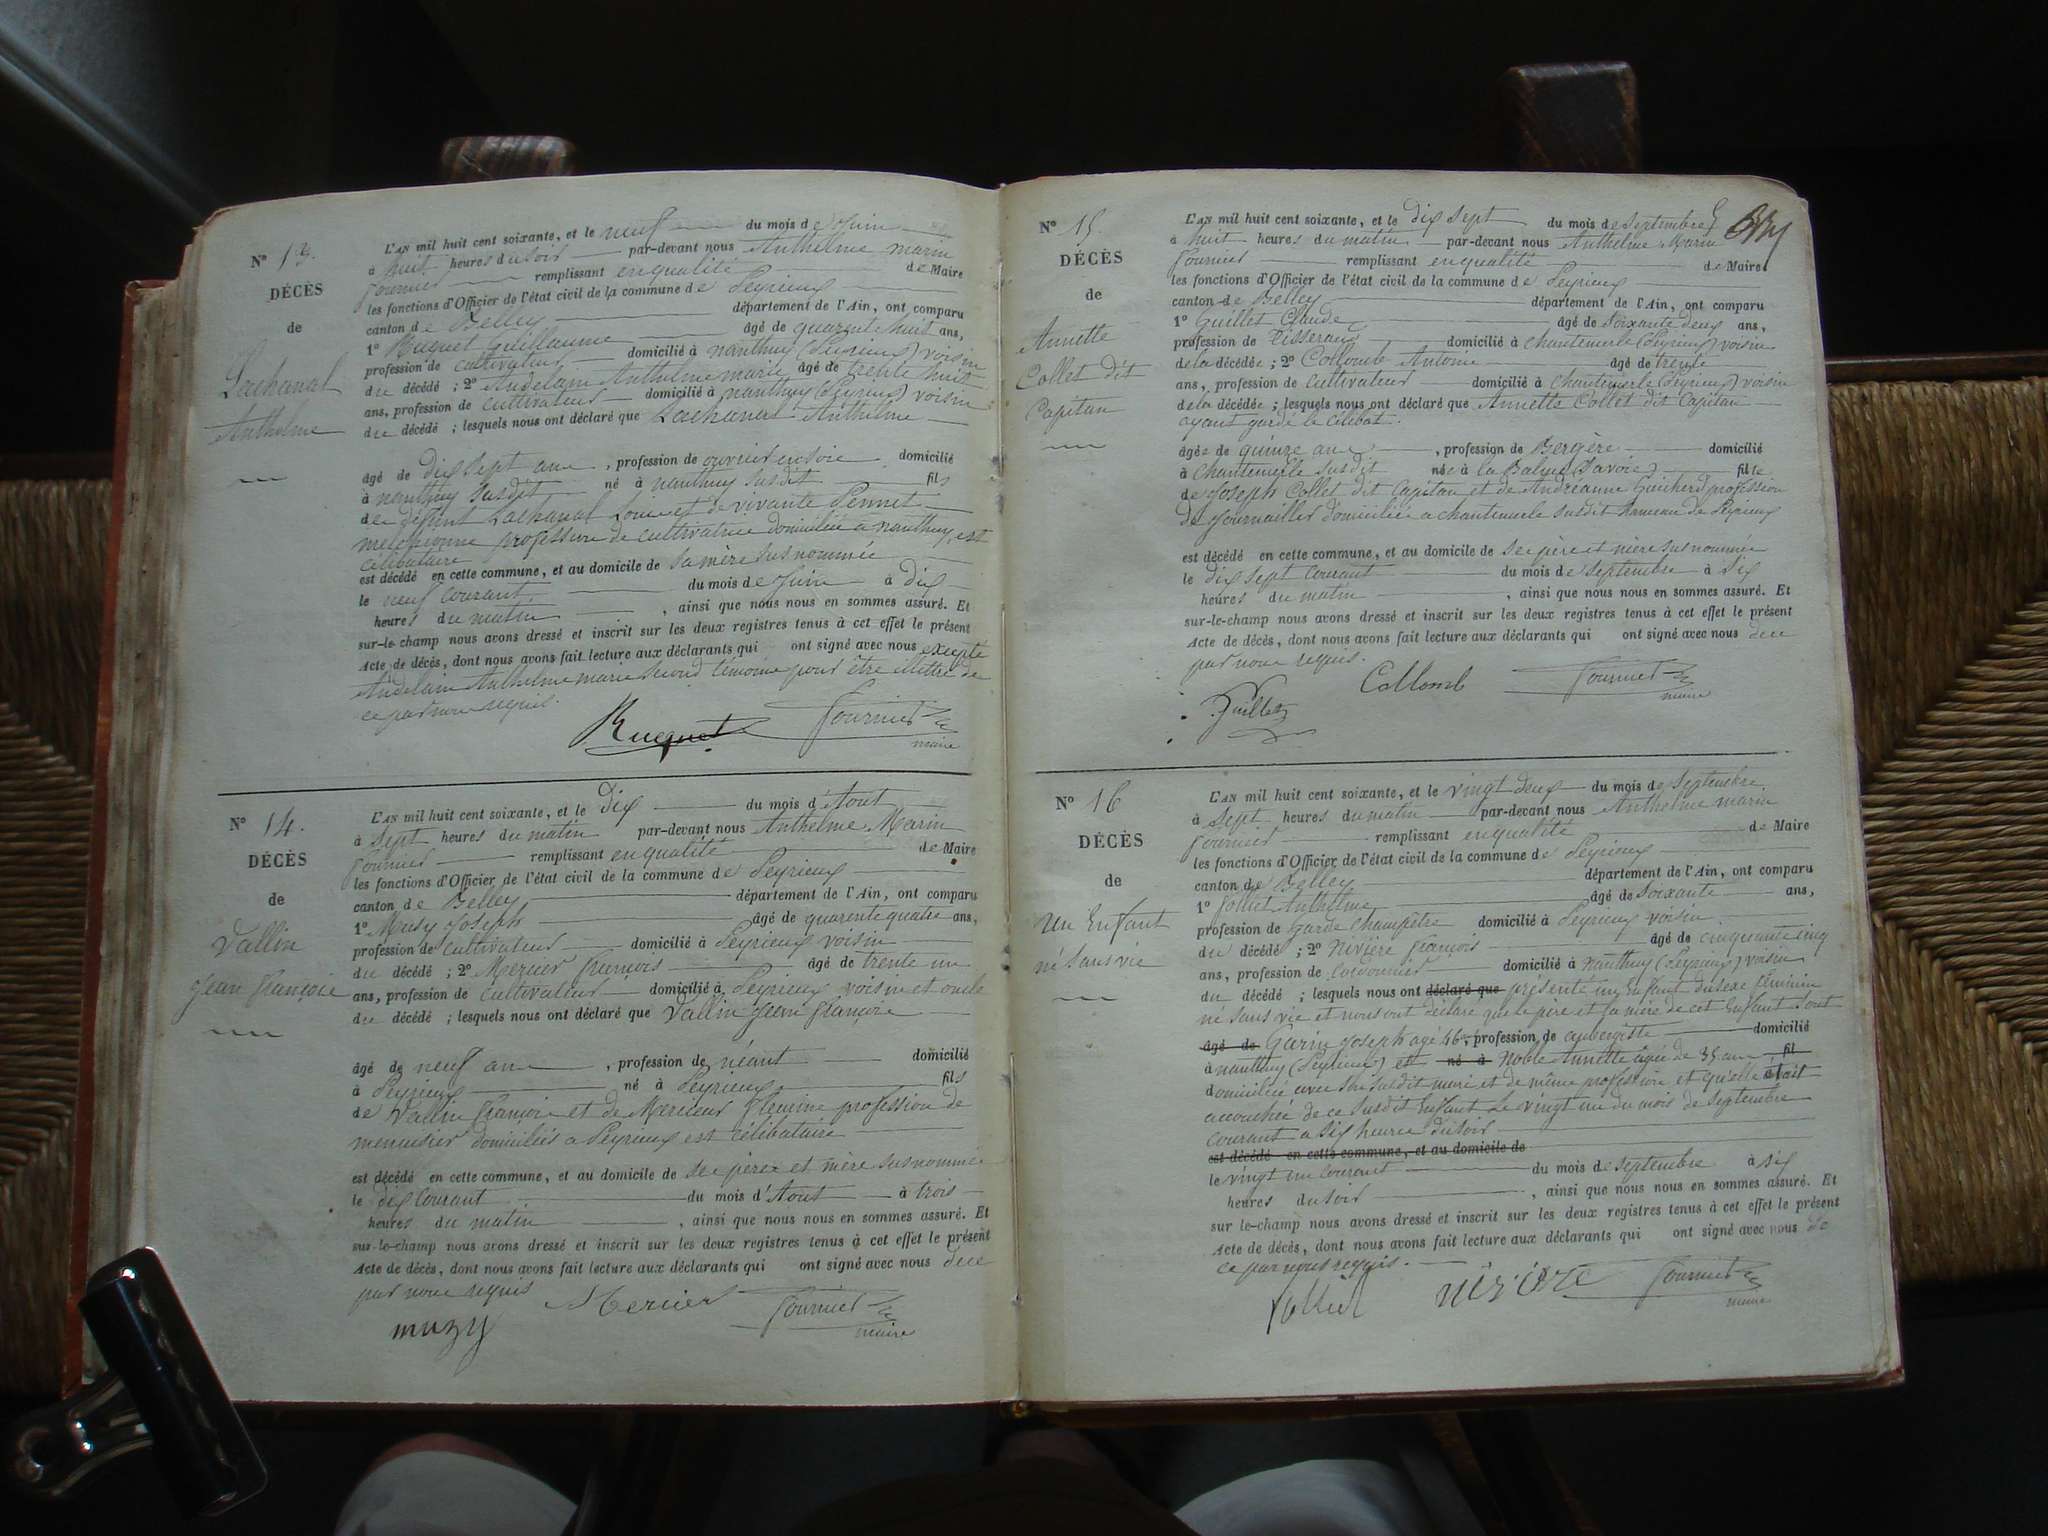 N° 13.
DÉCÈS
de
Lachanal
Anthelme
L'AN mil huit cent soixante, et le neuf du mois de Juin
à huit heures du soir par-devant nous Anthelme Marin
Fournier remplissant en qualité de Maire
les fonctions d'Officier de l'état civil de la commune de Peyrieux
canton de Belley département de l'Ain, ont comparu
1° Ruquet Guillaume âgé de quarante huit ans,
profession de cultivateur domicilié à nanthuy (Peyrieux) voisin
du décédé ; 2° Andelain Anthelme marie âgé de trente huit
ans, profession de cultivateur domicilié à nanthuy (Peyrieux) voisin
du décédé ; lesquels nous ont déclaré que Lachanal Anthelme
âgé de dix sept ans , profession de ouvrier en soie domicilié
à nanthuy susdit né à nanthuy susdit fils
de défunt Lachanal Louis et de vivante Pennet
profession de cultivatrice domiciliée à nanthuy, est
célibataire
est décédé en cette commune, et au domicile de sa mère susnommée
le neuf courant, du mois de Juin à dix
heures du matin , ainsi que nous nous en sommes assuré. Et
sur-le-champ nous avons dressé et inscrit sur les deux registres tenus à cet effet le présent
Acte de décès, dont nous avons fait lecture aux déclarants qui ont signé avec nous excepté
Andelain Anthelme marie second témoin pour être illitré de
ce par nous requis.
Rucquet Fournier
maire
N° 14.
DÉCÈS
de
Vallin
Jean François
L'AN mil huit cent soixante, et le Dix du mois d'Aout
à sept heures du matin par-devant nous Anthelme Marin
Fournier remplissant en qualité de Maire
les fonctions d'Officier de l'état civil de la commune de Peyrieux
canton de Belley département de l'Ain, ont comparu
1° Musy Joseph âgé de quarente quatre ans,
profession de cultivateur domicilié à Peyrieux voisin
du décédé ; 2° Mercier François âgé de trente un
ans, profession de cultivateur domicilié à Peyrieux voisin et oncle
du décédé ; lesquels nous ont déclaré que Vallin Jean François
âgé de neuf ans , profession de néant domicilié
à Peyrieux né à Peyrieux fils
de Vallin François et de Mercier profession de
menuisier domiciliés à Peyrieux est célibataire
est décédé en cette commune, et au domicile de ses père et mère susnommés
le dix courant du mois d'Aout à trois
heures du matin , ainsi que nous nous en sommes assuré. Et
sur-le-champ nous avons dressé et inscrit sur les deux registres tenus à cet effet le présent
Acte de décès, dont nous avons fait lecture aux déclarants qui ont signé avec nous dece
par nous requis
muzy Mercier Fournier
maire
N° 15.
DÉCÈS
de
Annette
Collet dit
Capitan
L'AN mil huit cent soixante, et le dix sept du mois de septembre
à huit heures du matin par-devant nous Anthelme Marin
Fournier remplissant en qualité de Maire
les fonctions d'Officier de l'état civil de la commune de Peyrieux
canton de Belley département de l'Ain, ont comparu
1° Guillet Claude âgé de soixante deux ans,
profession de Tisserand domicilié à chantemerle (Peyrieux) voisin
de la décédée ; 2° Collomb Antoine âgé de trente
ans, profession de cultivateur domicilié à chantemerle (Peyrieux) voisin
de la décédée ; lesquels nous ont déclaré que Annette Collet dit Capitan
ayant gardé le célibat.
âgée de quinze ans , profession de Bergère domicilié
à chantemerle susdit née à la Balme (Savoie) fille
de Joseph Collet dit Capitan et de Andréanne Guicherd profession
de Journaillers domiciliés à chantemerle susdit hameau de Peyrieux
est décédé en cette commune, et au domicile de ses père et mère susnommés
le dix sept courant du mois de septembre à six
heures du matin , ainsi que nous nous en sommes assuré. Et
sur-le-champ nous avons dressé et inscrit sur les deux registres tenus à cet effet le présent
Acte de décès, dont nous avons fait lecture aux déclarants qui ont signé avec nous dece
par nous requis.
Guillet Collomb Fournier
maire
N° 16
DÉCÈS
de
Un Enfant
né sans vie
L'AN mil huit cent soixante, et le vingt deux du mois de Septembre
à sept heures du matin par-devant nous Anthelme marin
Fournier remplissant en qualité de Maire
les fonctions d'Officier de l'état civil de la commune de Peyrieux
canton de Belley département de l'Ain, ont comparu
1° Jolliet Anthelme âgé de soixante ans,
profession de Garde champêtre domicilié à Peyrieux voisin
du décédé ; 2° Nivière François âgé de cinquante cinq
ans, profession de cordonnier domicilié à nanthuy (Peyrieux) voisin
du décédé ; lesquels nous ont déclaré que présenté un Enfant du sexe féminin
né sans vie et nous ont déclaré que le père et la mère de cet Enfant sont
âgé de Garin Joseph agé 46 ans, profession de aubergiste domicilié
à nanthuy (Peyrieux) et né à Noble Annette agée de 35 ans fil
domiciliée avec son susdit mari et de même profession et qu'elle était
accouchée de ce susdit Enfant Le vingt un du mois de Septembre
courant à six heures du soir
est décédé en cette commune, et au domicile de
le vingt un courant du mois de septembre à six
heures du soir , ainsi que nous nous en sommes assuré. Et
sur le-champ nous avons dressé et inscrit sur les deux registres tenus à cet effet le présent
Acte de décès, dont nous avons fait lecture aux déclarants qui ont signé avec nous de
ce par nous requis.
Jolliet niviere Fournier
maire